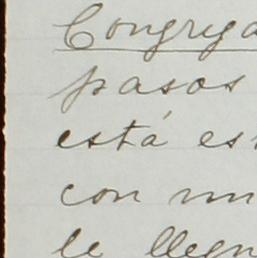 Congrega
pasos
está es
con un
le llegu